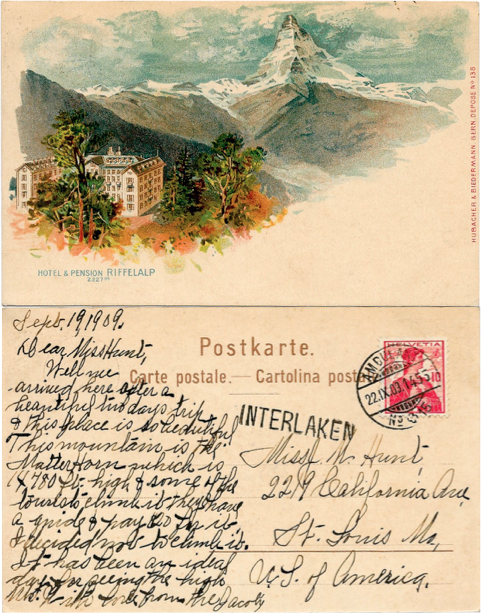 HOTEL & PENSION RIFFELALP
2227 m
HUBACHER & BIEDERMANN BERN. DEPOSÉ No 135
Sept. 19, 1909.
Dear Miss Hunt,
Well we
arrived here after a
beautiful two days trip
& this place is so beautiful
This mountain is the
Matterhorn which is
14780 ft. high & some of the
tourists climb it they have
a guide & pay for it
I decided not to climb it.
It has been an ideal
day for seeing the high
with love from the Jacoby
Postkarte.
Carte postale. — Cartolina post
HELVETIA
10
22.IX.09.
INTERLAKEN
Miss M. Hunt
2219 California Ave
St. Louis Mo,
U.S. of America.